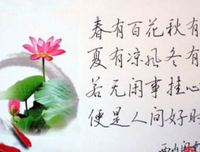 春有百花秋有
夏有凉风冬有
若无闲事挂心
便是人间好时